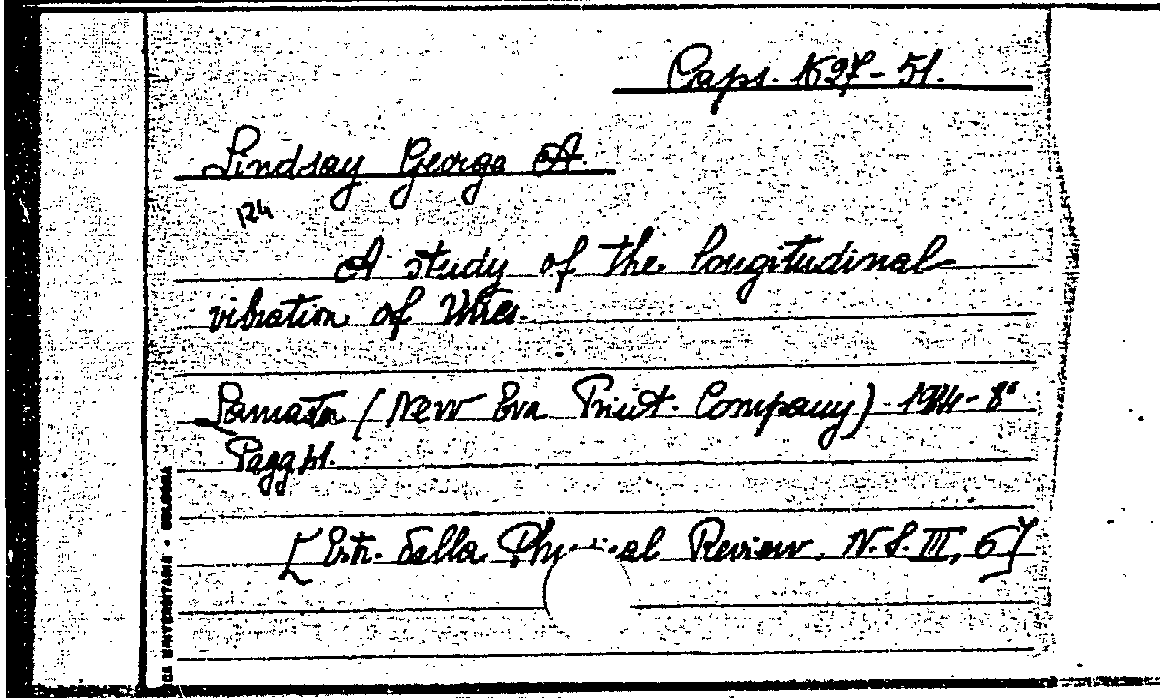 Caps. 1527-51.
Lindsay George A.
124
A study of the longitudinal
vibration of Wires.
(New Era Print. Company) 1914-8°
Pagg.
[Estr. della Physical Review. N.S. III, 6]
UNIVERSITARIA • BOLOGNA